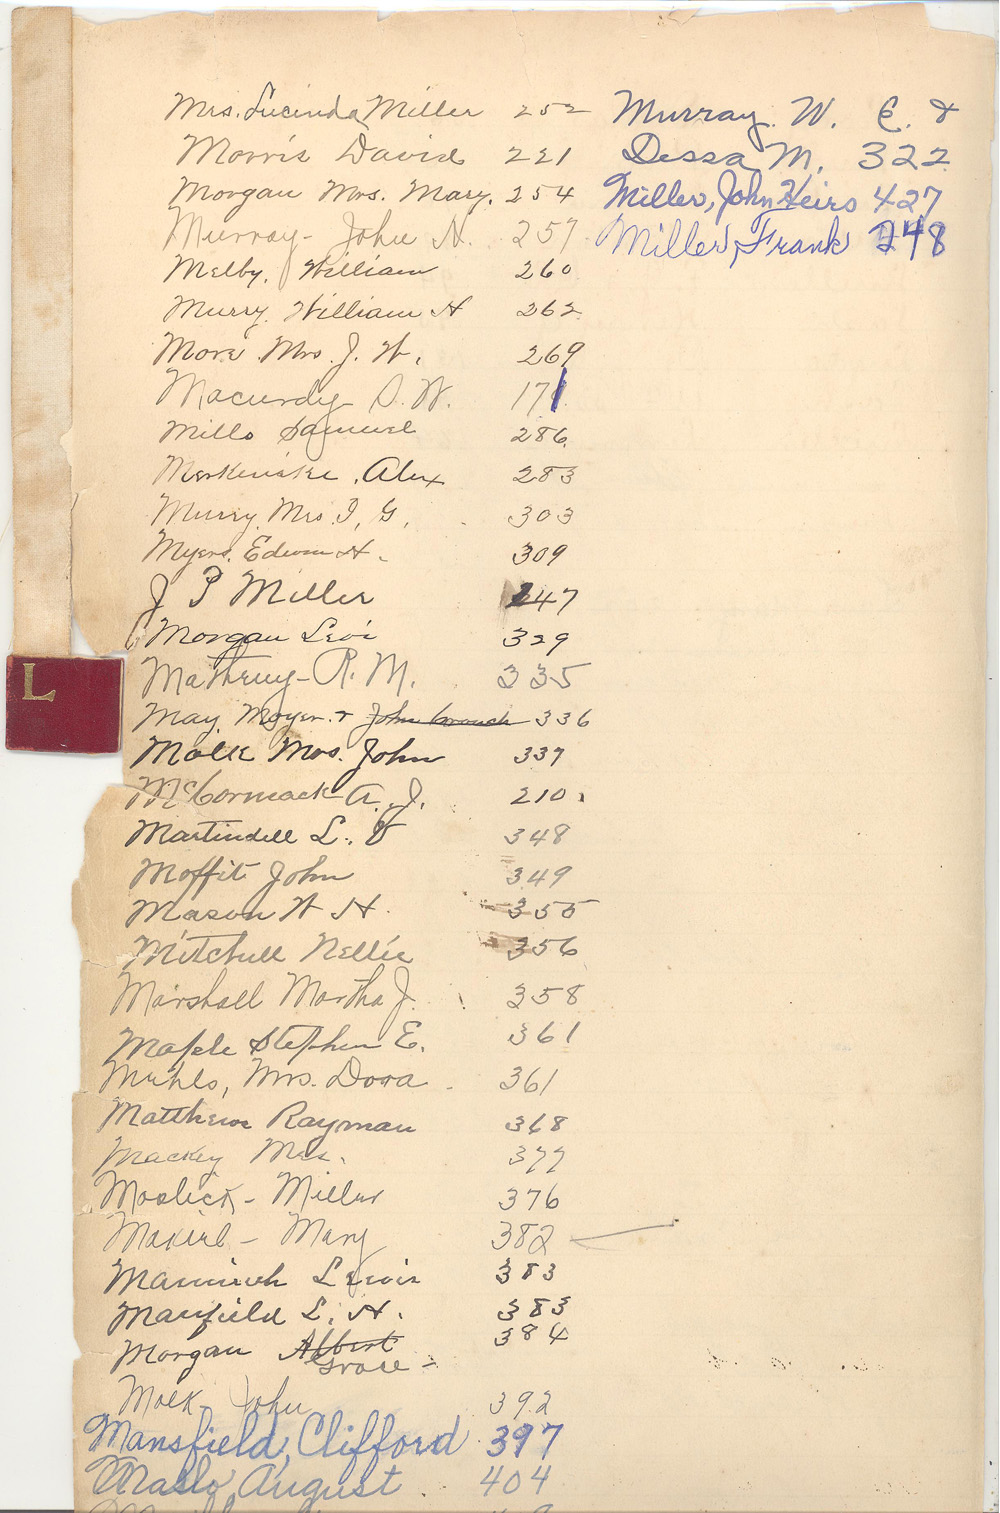 Mrs. Lucinda Miller 252
Morris David 221
Morgan Mrs. Mary. 254
Murray - John N. 257
Melby, William 260
Murry, William H 262
More Mrs. J. W. 269
Macurdy S. W. 171
Mills Samuel 286
Alex 283
Murry, Mrs. I. G. 303
Myers, Edwin H. 309
J P Miller 247
Morgan Levi 329
R. M. 335
May Moyer & John 336
Molk Mrs. John 337
McCormack A. J. 210
Martindell L. V 348
Moffit John 349
Mason W H. 355
Mitchell Nellie 356
Marshall Martha J. 358
Maple Stephen E. 361
Mrs. Dora 361
Matthews Rayman 368
Mackey Mrs. 377
Moslick - Miller 376
Mary 382
Lewis 383
Manfield L. H. 383
Morgan Albert 384
Grace -
Molk - John 392
Mansfield, Clifford 397
Maslo, August 404
Murray. W. E. &
Dessa M. 322
Miller, John Heirs 427
Miller, Frank 248
L